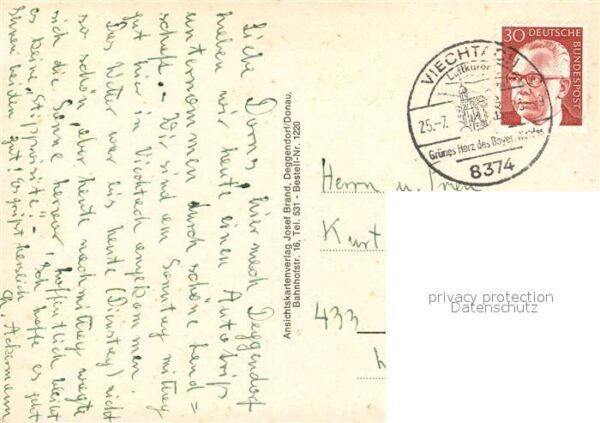 Liebe Doms, hier nach Deggendorf
haben wir heute einen Autotrip
unternommen durch schöne Land=
schaft. Wir sind am Sonntag mittag
gut hier in Viechtach angekommen.
Das Wetter war bis heute (Dienstag) nicht
so schön, aber heute nachmittag wagte
sich die Sonne hervor, hoffentlich bleibt
es keine "Stippvisite". Ich hoffe es geht
Ihnen beiden gut! Es grüßt herzlich
A. Ackermann
Ansichtskartenverlag Josef Brand, Deggendorf/Donau,
Bahnhofstr. 16, Tel. 531 - Bestell-Nr. 1220
VIECHTACH
Luftkurort
25.-7.
Grünes Herz des Bayer. Waldes
8374
30 DEUTSCHE
BUNDESPOST
Herrn u. Frau
Kurt
433
privacy protection
Datenschutz